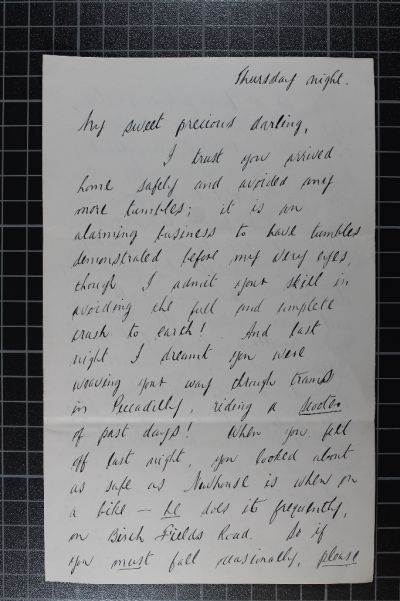 Thursday night.
My sweet precious darling,
I trust you arrived
home safely and avoided any
more tumbles; it is an
alarming business to have tumbles
demonstrated before my very eyes,
though I admit your skill in
avoiding the full and complete
crash to earth! And last
night I dreamt you were
weaving your way through trams
in Piccadilly, riding a scooter
of past days! When you fell
off last night, you looked about
as safe as Newhouse is when on
a bike — he does it frequently,
on Birch Fields Road. So if
you must fall occasionally, please